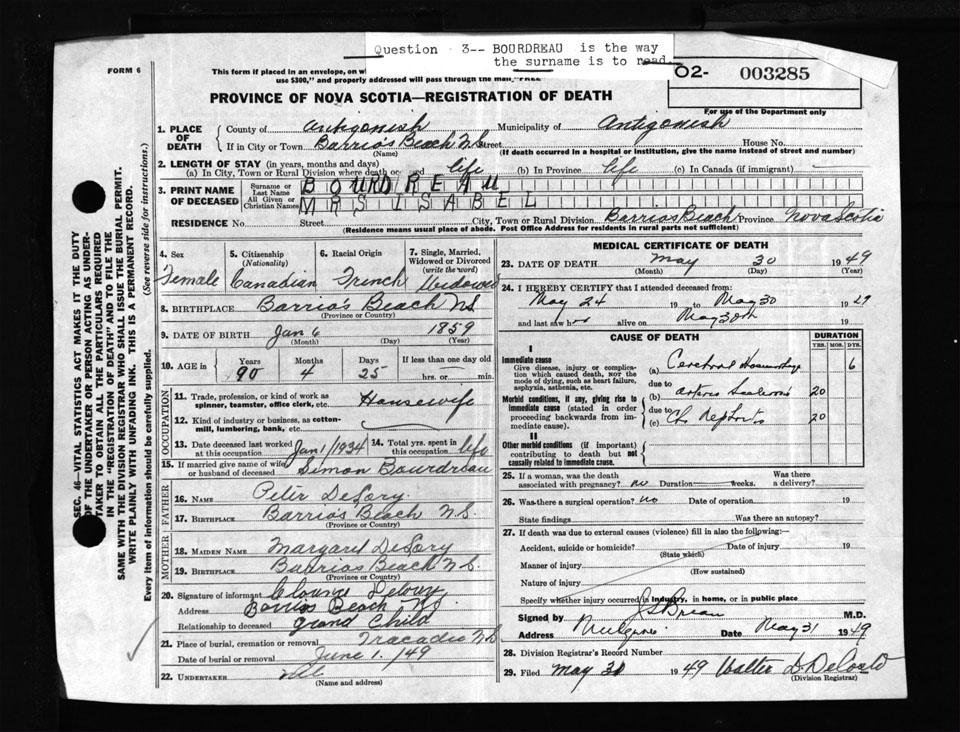 Question 3-- BOURDREAU is the way
the surname is to read.
FORM 6
This form if placed in an envelope, on w
use $300," and properly addressed will pass through the mail, "FREE"
O2- 003285
For use of the Department only
PROVINCE OF NOVA SCOTIA—REGISTRATION OF DEATH
1. PLACE OF DEATH
County of Antigonish Municipality of Antigonish
If in City or Town Barrio's Beach N.S. Street House No.
(Name) (If death occurred in a hospital or institution, give the name instead of street and number)
2. LENGTH OF STAY (in years, months and days)
(a) In City, Town or Rural Division where death occurred life (b) In Province life (c) In Canada (if immigrant) —
3. PRINT NAME OF DECEASED
Surname or Last Name BOURDREAU
All Given or Christian Names MRS ISABEL
RESIDENCE No. Street City, Town or Rural Division Barrios Beach Province Nova Scotia
(Residence means usual place of abode. Post Office Address for residents in rural parts not sufficient)
4. Sex Female
5. Citizenship (Nationality) Canadian
6. Racial Origin French
7. Single, Married, Widowed or Divorced (write the word) Widowed
8. BIRTHPLACE Barrio's Beach N.S.
(Province or Country)
9. DATE OF BIRTH Jan 6 1859
(Month) (Day) (Year)
10. AGE in Years 90 Months 4 Days 25 If less than one day old
hrs. or min.
OCCUPATION
11. Trade, profession, or kind of work as spinner, teamster, office clerk, etc. Housewife
12. Kind of industry or business, as cotton-mill, lumbering, bank, etc.
13. Date deceased last worked at this occupation Jan 1/1934 14. Total yrs. spent in this occupation life
15. If married give name of wife or husband of deceased Simon Bourdreau
FATHER
16. NAME Peter DeCory
17. BIRTHPLACE Barrio's Beach N.S.
(Province or Country)
MOTHER
18. MAIDEN NAME Margaret DeCory
19. BIRTHPLACE Barrios Beach N.S.
(Province or Country)
20. Signature of informant
Address Barrios Beach N.S.
Relationship to deceased grand Child
21. Place of burial, cremation or removal Tracadie N.S.
Date of burial or removal June 1. /49
22. UNDERTAKER
(Name and address)
MEDICAL CERTIFICATE OF DEATH
23. DATE OF DEATH May 30 1949
(Month) (Day) (Year)
24. I HEREBY CERTIFY that I attended deceased from:
May 24 19 to May 30 1949
and last saw her alive on May 30th 19
CAUSE OF DEATH DURATION
YRS. MOS. DYS.
I
Immediate cause
Give disease, injury or complication which caused death, NOT the mode of dying, such as heart failure, asphyxia, asthenia, etc.
(a) Cerebral Haemorrhage 6
due to
Morbid conditions, if any, giving rise to immediate cause (stated in order proceeding backwards from immediate cause).
(b) arterio Sclerosis 20
due to
(c) Chr Nephritis 20
II
Other morbid conditions (if important) contributing to death but not causally related to immediate cause.
25. If a woman, was the death associated with pregnancy? no Duration weeks. Was there a delivery?
26. Was there a surgical operation? no Date of operation 19
State findings Was there an autopsy?
27. If death was due to external causes (violence) fill in also the following:—
Accident, suicide or homicide? Date of injury 19
(State which)
Manner of injury
(How sustained)
Nature of injury
Specify whether injury occurred in industry, in home, or in public place
Signed by M.D.
Address Mulgrave Date May 31 1949
28. Division Registrar's Record Number
29. Filed May 30 1949 Walter D. DeCoste
(Division Registrar)
SEC. 46—VITAL STATISTICS ACT MAKES IT THE DUTY
OF THE UNDERTAKER OR PERSON ACTING AS UNDER-
TAKER TO OBTAIN ALL THE PARTICULARS REQUIRED
IN THE "REGISTRATION OF DEATH" AND TO FILE THE
SAME WITH THE DIVISION REGISTRAR WHO SHALL ISSUE THE BURIAL PERMIT.
WRITE PLAINLY WITH UNFADING INK. THIS IS A PERMANENT RECORD.
Every item of information should be carefully supplied. (See reverse side for instructions.)